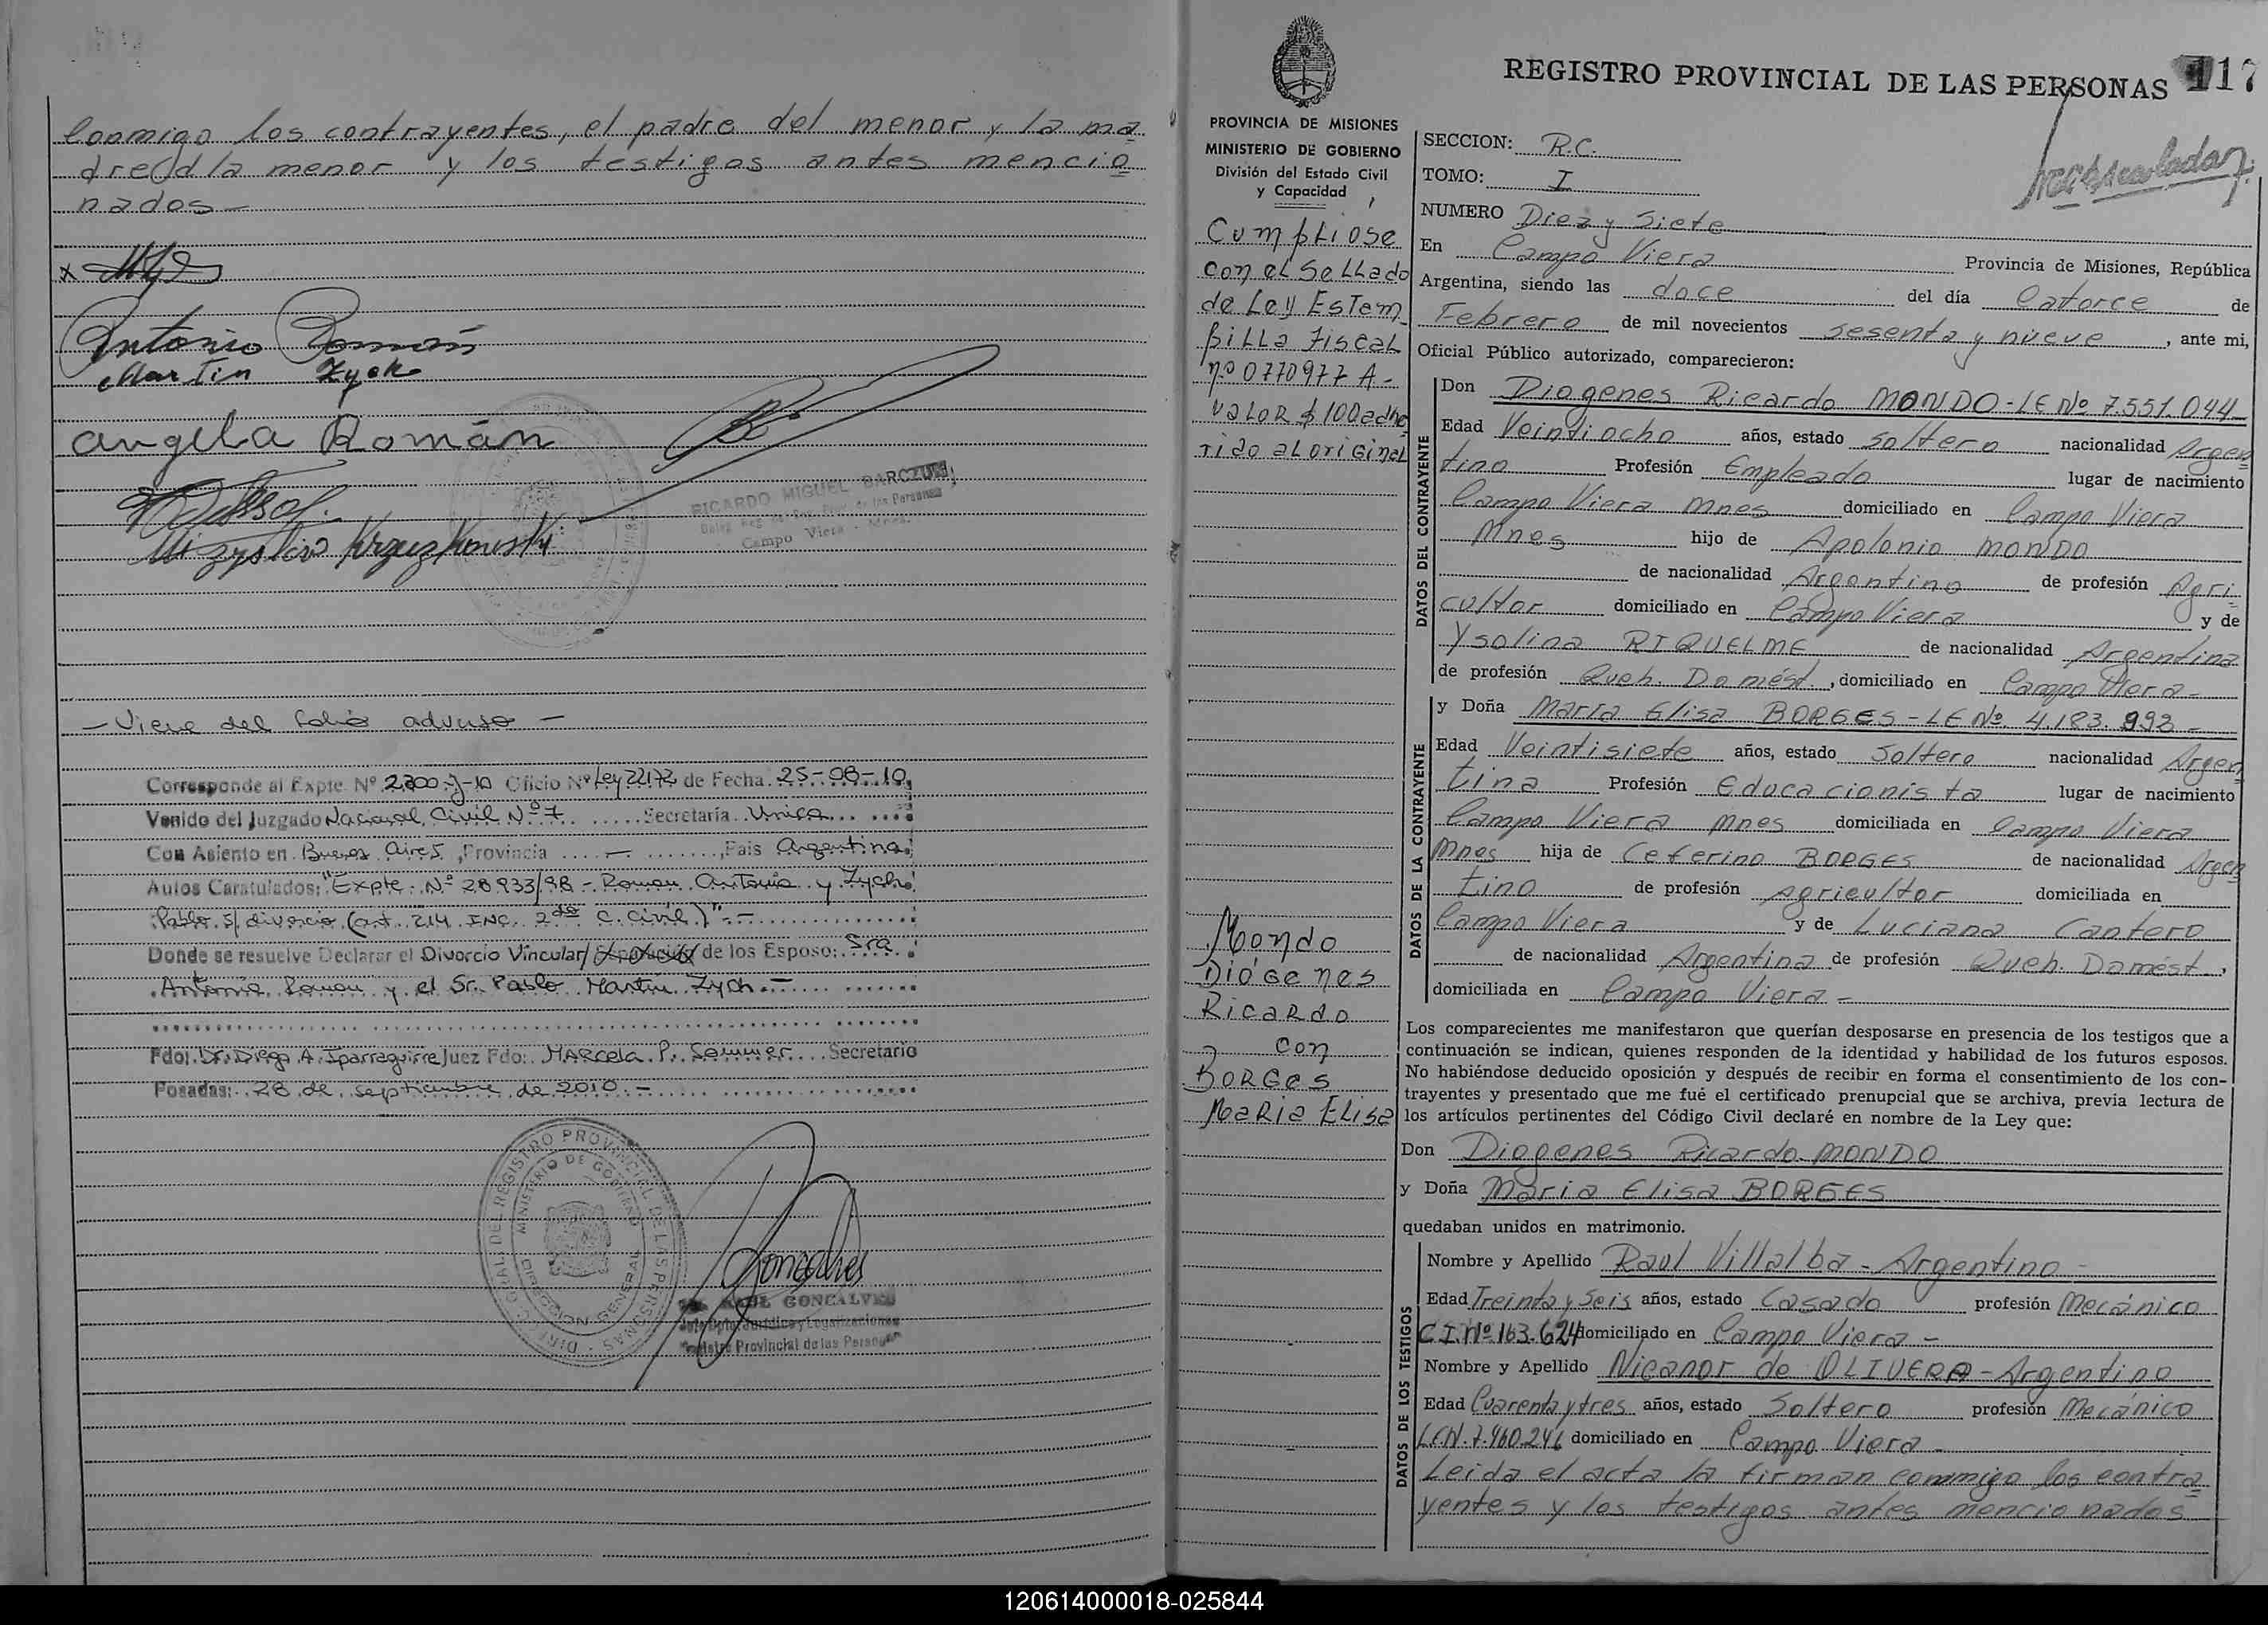 conmigo los contrayentes, el padre del menor y la ma
dre d la menor y los testigos antes mencio
nados —
x
Antonio Román
Martin Zych
Angela Román
RICARDO MIGUEL BARCZUK
Deleg. Reg. del Reg. Prov. de las Personas
Campo Viera - Mnes.
— Viene del folio adverso —
Corresponde al Expte. Nº 2300-J-10 Oficio Nº Ley 22172 de Fecha 25-08-10
Venido del Juzgado Nacional Civil Nº 7 Secretaría Unica
Con Asiento en Buenos Aires, Provincia — , Pais Argentina
Autos Caratulados: "Expte. Nº 28933/98 - Roman Antonia y Zych
Pablo s/ divorcio (art. 214 INC. 2do C. Civil)" . -
Donde se resuelve Declarar el Divorcio Vincular/ de los Esposo: Sra
Antonia Roman y el Sr. Pablo Martin Zych . -
Fdo: Dr. Diego A. Iparraguirre Juez Fdo: MARcela P. Sommer Secretario
Posadas: 28 de septiembre de 2010 . -
DIREC. GRAL. DEL REGISTRO PROVINCIAL DE LAS PERSONAS
MINISTERIO DE GOBIERNO
DIRECCION GENERAL
RAUL GONCALVES
Jefe Dpto. Jurídico y Legalizaciones
Registro Provincial de las Personas
REGISTRO PROVINCIAL DE LAS PERSONAS 117
PROVINCIA DE MISIONES
MINISTERIO DE GOBIERNO
División del Estado Civil
y Capacidad
Cumpliose
con el Sellado
de Ley Estem
pilla Fiscal
nº 0770977 A -
Valor $ 100 adhe
rido al original
Mondo
Diógenes
Ricardo
con
Borges
Maria Elisa
SECCION: R.C.
TOMO: I
NUMERO Diez y Siete
En Campo Viera Provincia de Misiones, República
Argentina, siendo las doce del día Catorce de
Febrero de mil novecientos sesenta y nueve, ante mi,
Oficial Público autorizado, comparecieron:
DATOS DEL CONTRAYENTE
Don Diogenes Ricardo MONDO - LE Nº 7.551.044 -
Edad Veintiocho años, estado soltero nacionalidad Argen
tino Profesión Empleado lugar de nacimiento
Campo Viera Mnes domiciliado en Campo Viera
Mnes hijo de Apolonio MONDO
de nacionalidad Argentino de profesión Agri
cultor domiciliado en Campo Viera y de
Ysolina RIQUELME de nacionalidad Argentina
de profesión Queh. Domést, domiciliado en Campo Viera -
DATOS DE LA CONTRAYENTE
y Doña Maria Elisa BORGES - LE Nº 4.183.993 -
Edad Veintisiete años, estado Soltera nacionalidad Argen
tina Profesión Educacionista lugar de nacimiento
Campo Viera Mnes domiciliada en Campo Viera
Mnes hija de Ceferino BORGES de nacionalidad Argen
tino de profesión Agricultor domiciliada en
Campo Viera y de Luciana Cantero
de nacionalidad Argentina de profesión Queh. Domést,
domiciliada en Campo Viera -
Los comparecientes me manifestaron que querían desposarse en presencia de los testigos que a
continuación se indican, quienes responden de la identidad y habilidad de los futuros esposos.
No habiéndose deducido oposición y después de recibir en forma el consentimiento de los con-
trayentes y presentado que me fué el certificado prenupcial que se archiva, previa lectura de
los artículos pertinentes del Código Civil declaré en nombre de la Ley que:
Don Diogenes Ricardo MONDO
y Doña Maria Elisa BORGES
quedaban unidos en matrimonio.
DATOS DE LOS TESTIGOS
Nombre y Apellido Raul Villalba - Argentino -
Edad Treinta y Seis años, estado Casado profesión Mecánico
C.I. Nº 163.624 domiciliado en Campo Viera -
Nombre y Apellido Nicanor de OLIVERA - Argentino
Edad Cuarenta y tres años, estado Soltero profesión Mecánico
L.E.N. 7.460.246 domiciliado en Campo Viera -
Leida el acta la firman conmigo los contra
yentes y los testigos antes mencionados
120614000018-025844